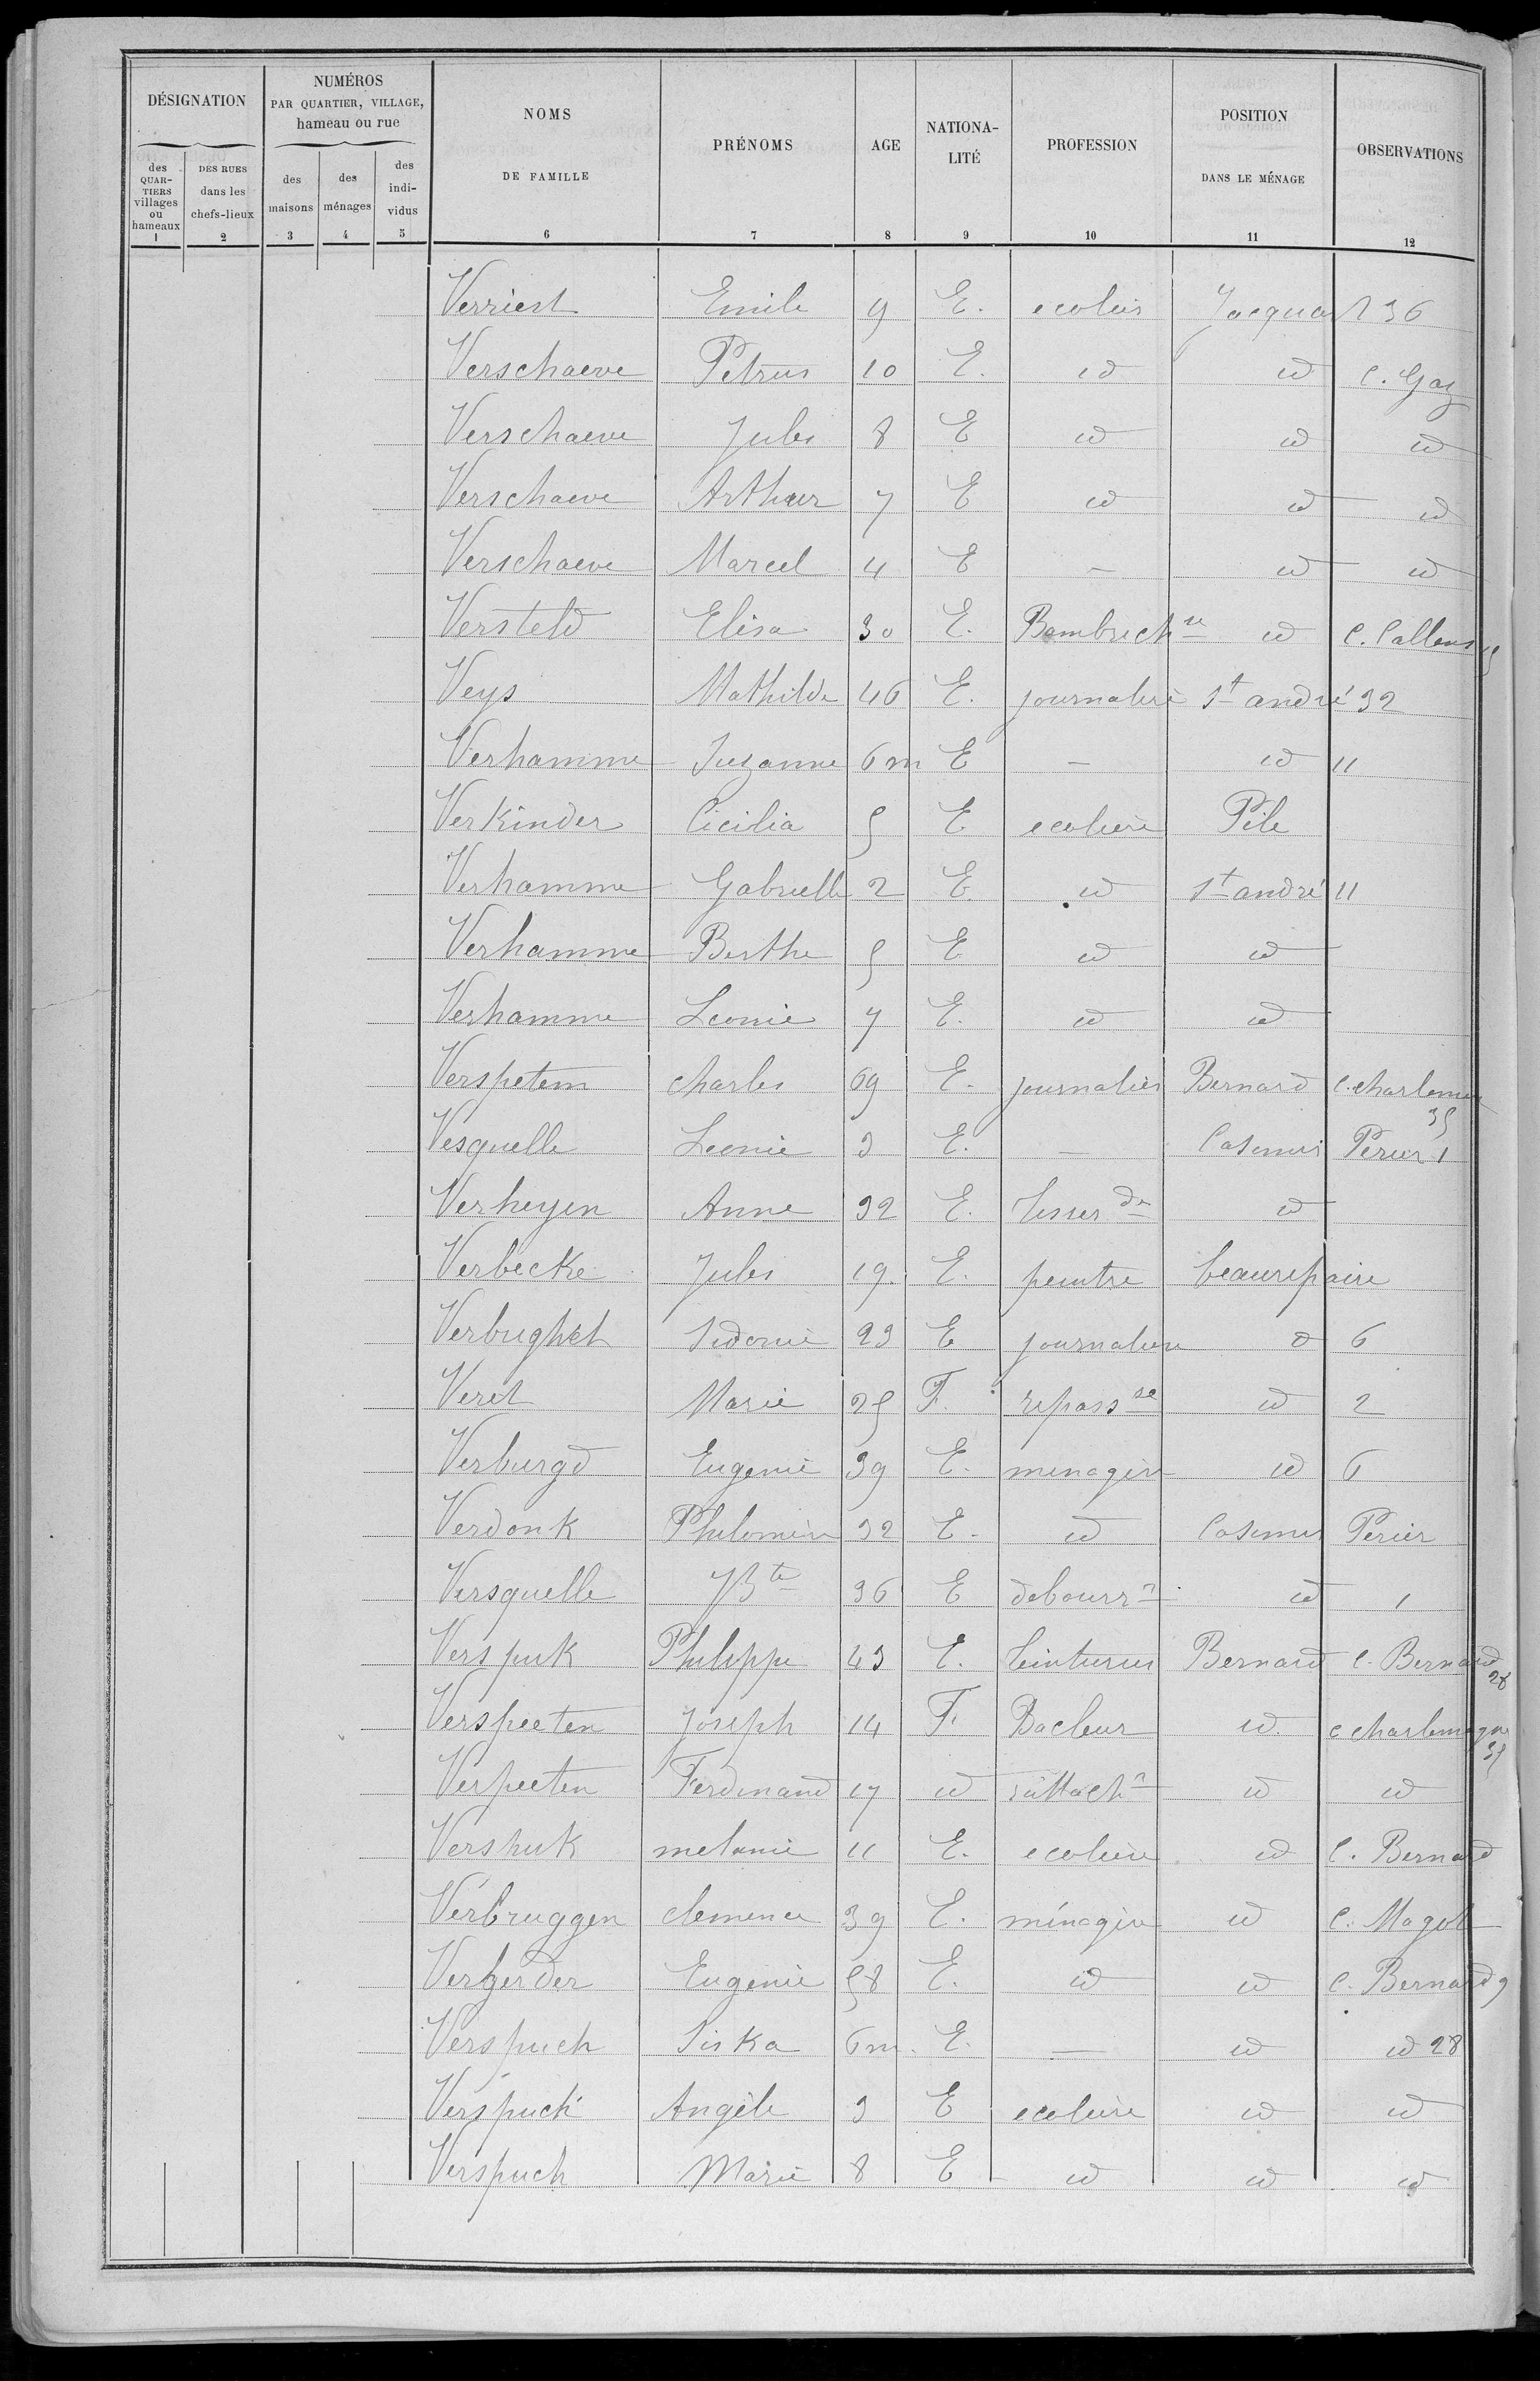 DÉSIGNATION
NUMÉROS PAR QUARTIER, VILLAGE, hameau ou rue
NOMS DE FAMILLE
PRÉNOMS
AGE
NATIONA-LITÉ
PROFESSION
POSITION DANS LE MÉNAGE
OBSERVATIONS
des QUAR-TIERS villages ou hameaux
DES RUES dans les chefs-lieux
des maisons
des ménages
des indi-vidus
1 2 3 4 5 6 7 8 9 10 11 12
Verriest Emile 9 E. ecolier Jacquart 36
Verschaeve Petrus 10 E. id id C. Gaz
Verschaeve Jules 8 E id id id
Verschaeve Arthur 7 E id id id
Verschaeve Marcel 4 E — id id
Versteld Elisa 30 E. Bambroch re id C. Callens 5
Veys Mathilde 46 E. journaliere St andré 32
Verhamme Suzanne 6 m E — id 11
Verkinder Cicilia 5 E ecoliere Pile
Verhamme Gabrielle 2 E. id St andré 11
Verhamme Berthe 5 E id id
Verhamme Leonie 7 E. id id
Verspetem charles 69 E. journalier Bernard C. charlemagne 35
Vesquelle Leonie 3 E. — Casimir Perier 1
Verheyen Anne 32 E. id
Verbecke Jules 19 E. peintre beaurepaire
Verbughet Sidonie 23 E journaliere d 6
Veret Marie 25 F. repass se id 2
Verburgd Eugenie 39 E. menagère id 6
Verdonk Philomène 32 E. id Casimir Perier
Versquelle JBte 36 E debourr r id 1
Verspuk Philippe 43 E. teinturier Bernard C. Bernard 28
Verspeeten Joseph 14 F. Bacleur id. c charlemagne 35
Verpeeten Ferdinand 17 id rattach r id id
Vershuk melanie 11 E. ecolière id C. Bernard
Verbruggen clemence 39 E. ménagère id C. Magot
Verherder Eugenie 58 E. id id C. Bernard 9
Verspuch Siska 6 m. E. — id id 28
Verspuch Angèle 3 E ecoliere id id
Verspuch Marie 8 E id id id